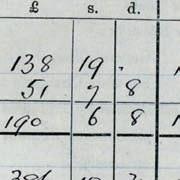 £ s. d.
138 19 .
51 7 8
190 6 8